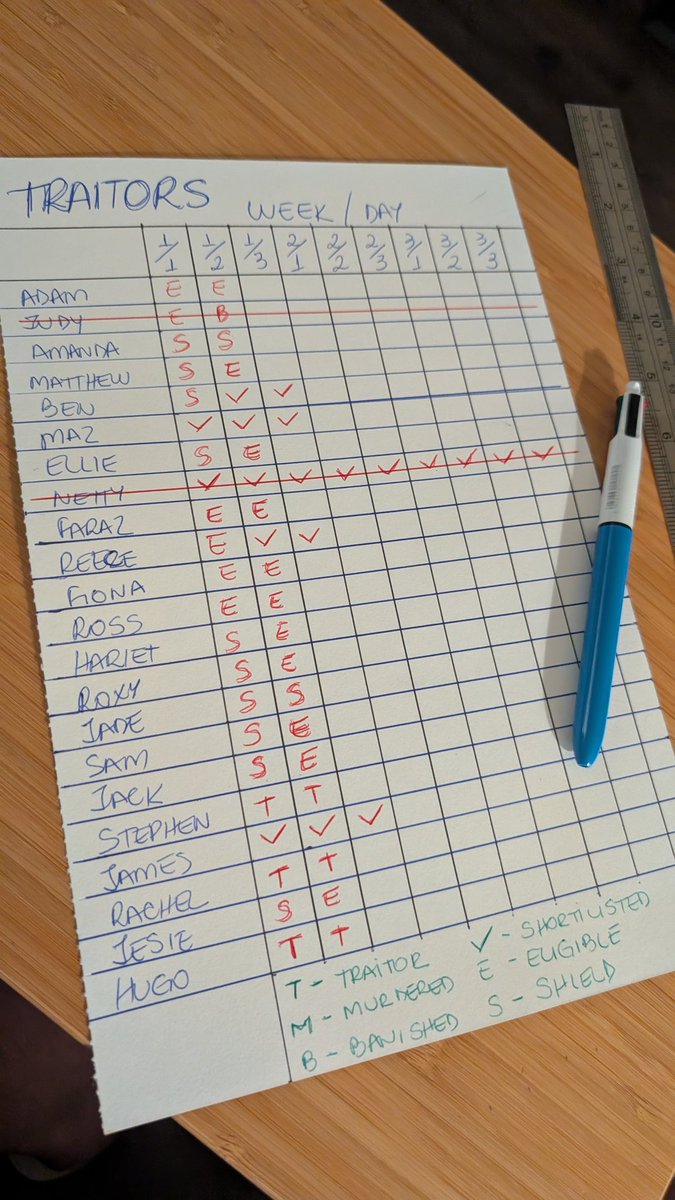 TRAITORS WEEK / DAY
1/1 1/2 1/3 2/1 2/2 2/3 3/1 3/2 3/3
ADAM E E
JUDY E B
AMANDA S S
MATTHEW S E
BEN S ✓ ✓
MAZ ✓ ✓ ✓
ELLIE S E
NETTY ✓ ✓ ✓ ✓ ✓ ✓ ✓ ✓ ✓
FARAZ E E
REECE E ✓ ✓
FIONA E E
ROSS E E
HARIET S E
ROXY S E
JADE S S
SAM S E
JACK S E
STEPHEN T T
JAMES ✓ ✓ ✓
RACHEL T T
JESIE S E
HUGO T T
T - TRAITOR ✓ - SHORTLISTED
M - MURDERED E - ELIGIBLE
B - BANISHED S - SHIELD